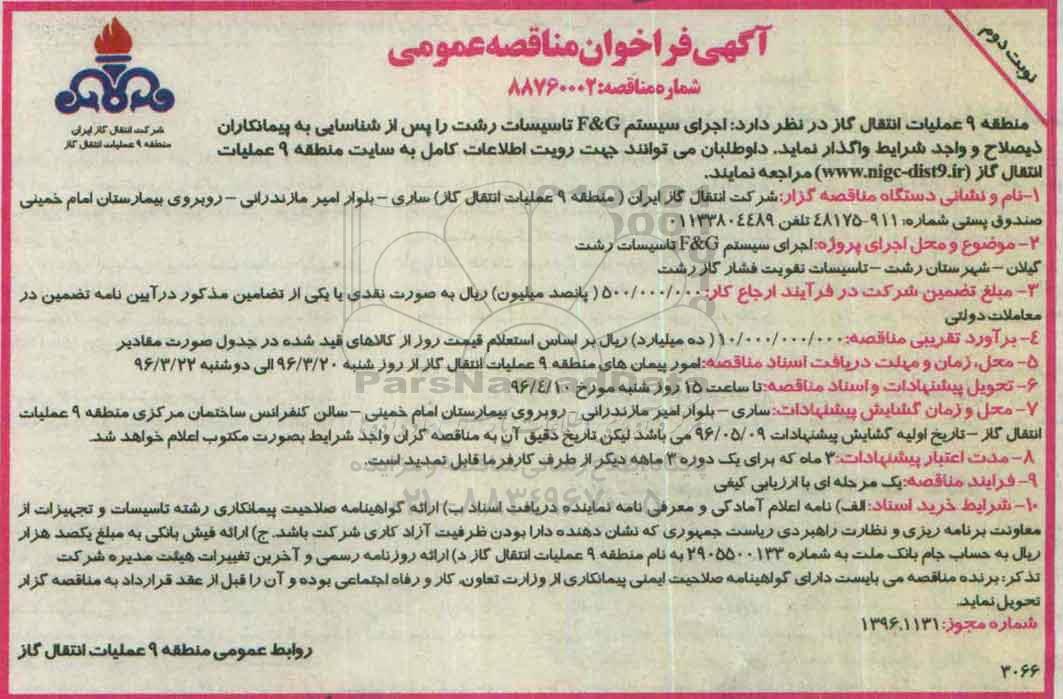 نوبت دوم
آگهی فراخوان مناقصه عمومی
شماره مناقصه: ۸۸۷۶۰۰۰۲
شرکت انتقال گاز ایران
منطقه ۹ عملیات انتقال گاز
منطقه ۹ عملیات انتقال گاز در نظر دارد: اجرای سیستم F&G تاسیسات رشت را پس از شناسایی به پیمانکاران
ذیصلاح و واجد شرایط واگذار نماید. داوطلبان می توانند جهت رویت اطلاعات کامل به سایت منطقه ۹ عملیات
انتقال گاز (www.nigc-dist9.ir) مراجعه نمایند.
۱- نام و نشانی دستگاه مناقصه گزار: شرکت انتقال گاز ایران ( منطقه ۹ عملیات انتقال گاز) ساری – بلوار امیر مازندرانی – روبروی بیمارستان امام خمینی
صندوق پستی شماره: ۹۱۱-۴۸۱۷۵ تلفن ۰۱۱۳۳۸۰۴۴۸۹
۲- موضوع و محل اجرای پروژه: اجرای سیستم F&G تاسیسات رشت
گیلان – شهرستان رشت – تاسیسات تقویت فشار گاز رشت
۳- مبلغ تضمین شرکت در فرآیند ارجاع کار: ۵۰۰/۰۰۰/۰۰۰ ( پانصد میلیون) ریال به صورت نقدی یا یکی از تضامین مذکور درآیین نامه تضمین در
معاملات دولتی
۴- برآورد تقریبی مناقصه: ۱۰/۰۰۰/۰۰۰/۰۰۰ ( ده میلیارد) ریال بر اساس استعلام قیمت روز از کالاهای قید شده در جدول صورت مقادیر
۵- محل، زمان و مهلت دریافت اسناد مناقصه: امور پیمان های منطقه ۹ عملیات انتقال گاز از روز شنبه ۹۶/۳/۲۰ الی دوشنبه ۹۶/۳/۲۲
۶- تحویل پیشنهادات و اسناد مناقصه: تا ساعت ۱۵ روز شنبه مورخ ۹۶/۴/۱۰
۷- محل و زمان گشایش پیشنهادات: ساری – بلوار امیر مازندرانی – روبروی بیمارستان امام خمینی – سالن کنفرانس ساختمان مرکزی منطقه ۹ عملیات
انتقال گاز – تاریخ اولیه گشایش پیشنهادات ۹۶/۰۵/۰۹ می باشد لیکن تاریخ دقیق آن به مناقصه گران واجد شرایط بصورت مکتوب اعلام خواهد شد.
۸- مدت اعتبار پیشنهادات: ۳ ماه که برای یک دوره ۳ ماهه دیگر از طرف کارفرما قابل تمدید است.
۹- فرایند مناقصه: یک مرحله ای با ارزیابی کیفی
۱۰- شرایط خرید اسناد: الف) نامه اعلام آمادگی و معرفی نامه نماینده دریافت اسناد ب) ارائه گواهینامه صلاحیت پیمانکاری رشته تاسیسات و تجهیزات از
معاونت برنامه ریزی و نظارت راهبردی ریاست جمهوری که نشان دهنده دارا بودن ظرفیت آزاد کاری شرکت باشد. ج) ارائه فیش بانکی به مبلغ یکصد هزار
ریال به حساب جام بانک ملت به شماره ۲۹۰۵۵۰۰۱۳۳ به نام منطقه ۹ عملیات انتقال گاز د) ارائه روزنامه رسمی و آخرین تغییرات هیئت مدیره شرکت
تذکر: برنده مناقصه می بایست دارای گواهینامه صلاحیت ایمنی پیمانکاری از وزارت تعاون، کار و رفاه اجتماعی بوده و آن را قبل از عقد قرارداد به مناقصه گزار
تحویل نماید.
شماره مجوز: ۱۳۹۶.۱۱۳۱
روابط عمومی منطقه ۹ عملیات انتقال گاز
۳۰۶۶